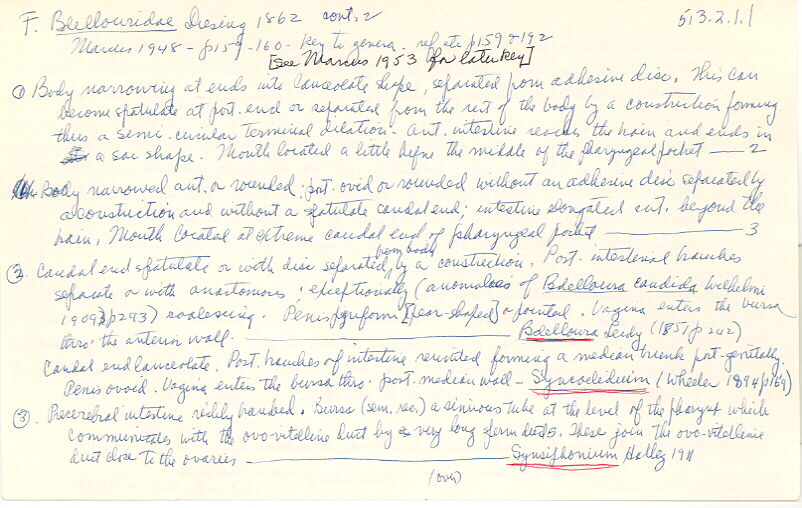 F. Bdellouridae Diesing 1862 cont. 2
513.2.1.1
Marcus 1948 - p159-160 - Key to genera. ref etc p159 & 192
[See Marcus 1953 for later key]
① Body narrowing at ends into lanceolate shape, separated from adhesive disc. This can
become spatulate at post. end or separated from the rest of the body by a constriction forming
thus a semi-circular terminal dilation. Ant. intestine reaches the brain and ends in
a sac shape. Mouth located a little before the middle of the pharyngeal pocket — 2
Body narrowed ant. or rounded; post. ovid or rounded without an adhesive disc separated by
a constriction and without a spatulate caudal end; intestine elongated ant. beyond the
brain. Mouth located at extreme caudal end of pharyngeal pocket — 3
② Caudal end spatulate or with disc separated from body by a constriction. Post. intestinal branches
separate or with anastomoses; exceptionally (anomalies of Bdelloura candida Wilhelmi
1909 p293) coalescing. Penis pyriform [pear-shaped] or pointed. Vagina enters the bursa
thro' the anterior wall. — Bdelloura Leidy (1851 p242)
Caudal end lanceolate. Post. branches of intestine reunited forming a median trunk post-genitally.
Penis ovoid. Vagina enters the bursa thro' post. median wall - Syncoelidium (Wheeler 1894 p169)
③. Precerebral intestine richly branched. Bursa (sem. rec.) a sinuous tube at the level of the pharynx which
communicates with the ovo-vitelline duct by very long ducts. These join the ovo-vitelline
duct close to the ovaries — Synsiphonium Hallez 1911
(over)